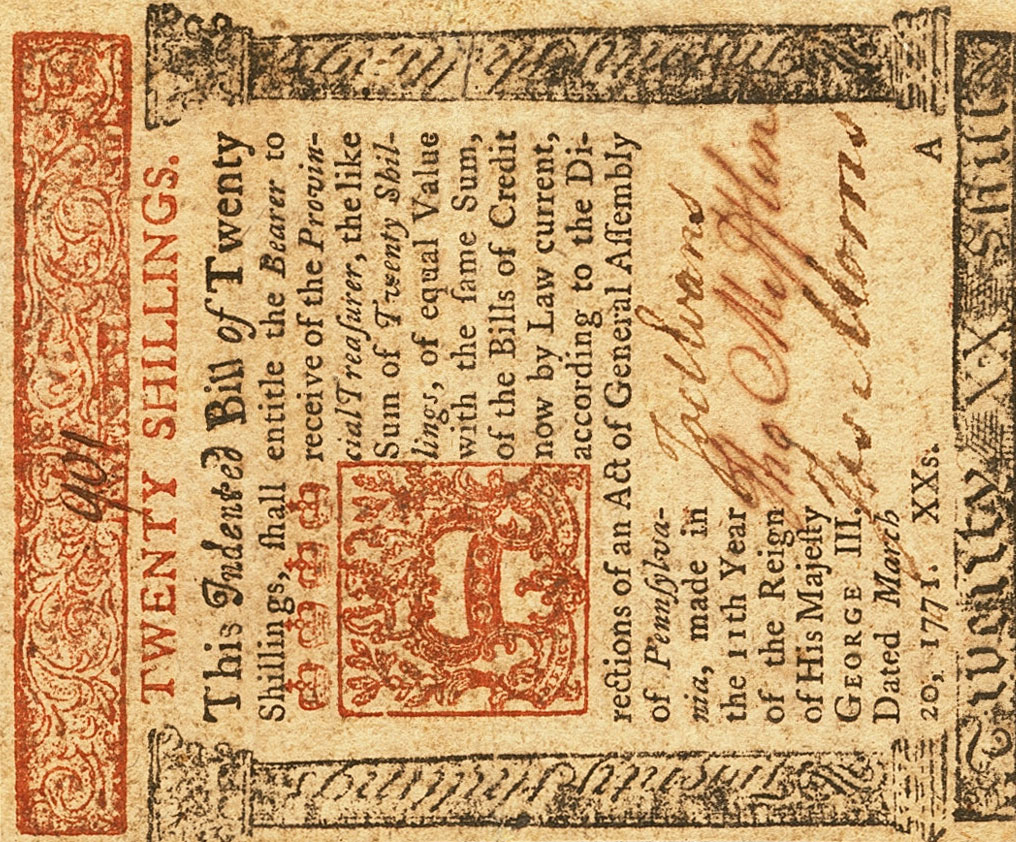 901
TWENTY SHILLINGS.
This Indented Bill of Twenty
Shillings, ſhall entitle the Bearer to
receive of the Provin-
cial Treaſurer, the like
Sum of Twenty Shil-
lings, of equal Value
with the ſame Sum,
of the Bills of Credit
now by Law current,
according to the Di-
rections of an Act of General Aſſembly
of Pennſylva-
nia, made in
the 11th Year
of the Reign
of His Majeſty
GEORGE III.
Dated March
20, 1771. XXs.
A
Joel Evans
Tho Mifflin
Twenty Shillings
Twenty XX Shill